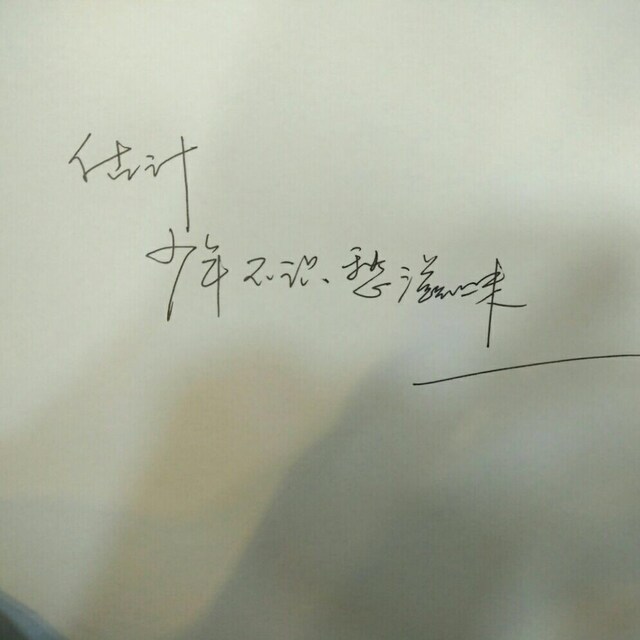 估计
少年不识愁滋味